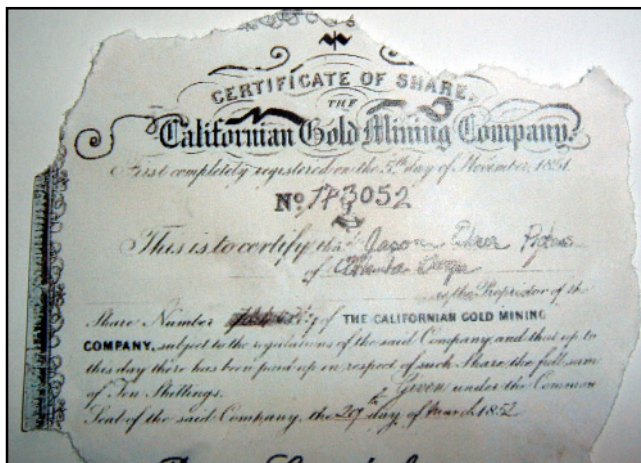 CERTIFICATE OF SHARE.
THE
Californian Gold Mining Company.
First completely registered on the 5th day of November, 1851.
No 183052
This is to certify that Jason
of
the Proprietor of the
Share Number of THE CALIFORNIAN GOLD MINING
COMPANY, subject to the regulations of the said Company and that up to
this day there has been paid up in respect of such Share, the full sum
of Ten Shillings. Given under the Common
Seal of the said Company, the 29th day of March 1852